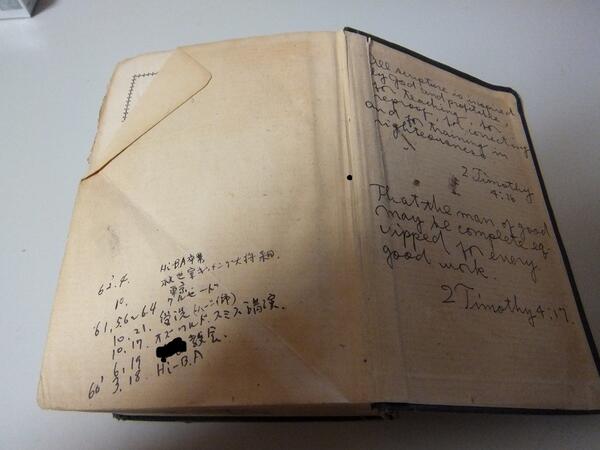 Hi-BA卒業
62'. 4.
東京
10. クルセード
'61, 5.6~6.4
10. 21. 受洗
10. 17. オズワルド スミス 講演.
6, 19 教会.
60' 3. 18. Hi-B.A
All scripture is inspired
by God and profitable
for teaching, for
reproof, for correcting
and for training in
righteousness
2 Timothy
4:16
That the man of good
may be complete eq-
uipped for every
good work
2 Timothy 4:17.